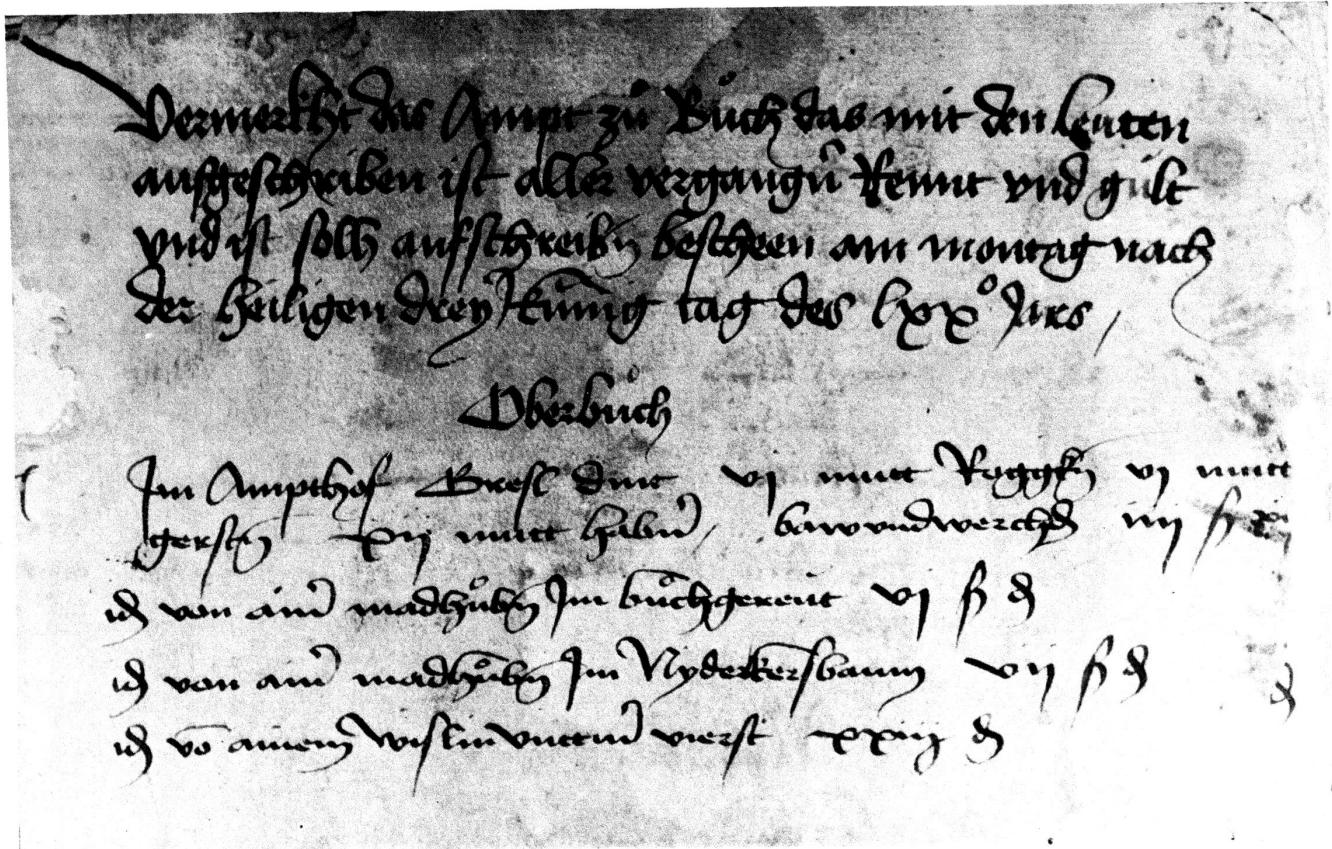 Vermerkht das Ampt zů Bůch das mit den leuten
aufgeschriben ist aller vergangn̄ Rennt vnd gült
vnd ist solh aufschreibn̄ bescheen am montag nach
der heiligen drey kunig tag des lxxº Jars /
Oberbůch
Im Ampthof Gresl dint vj mutt Roggkn̄ vj mutt
gerstn̄ xij mutt habn̄ / bawvndwerchd₎ iiij ß
id₎ von aim̄ madhůbn̄ Im bůchgereut vj ß d₎
id₎ von aim̄ madhůbn̄ Im Nyderkersbaum vij ß d₎
id₎ vō ainem wislin vierst xxiij d₎